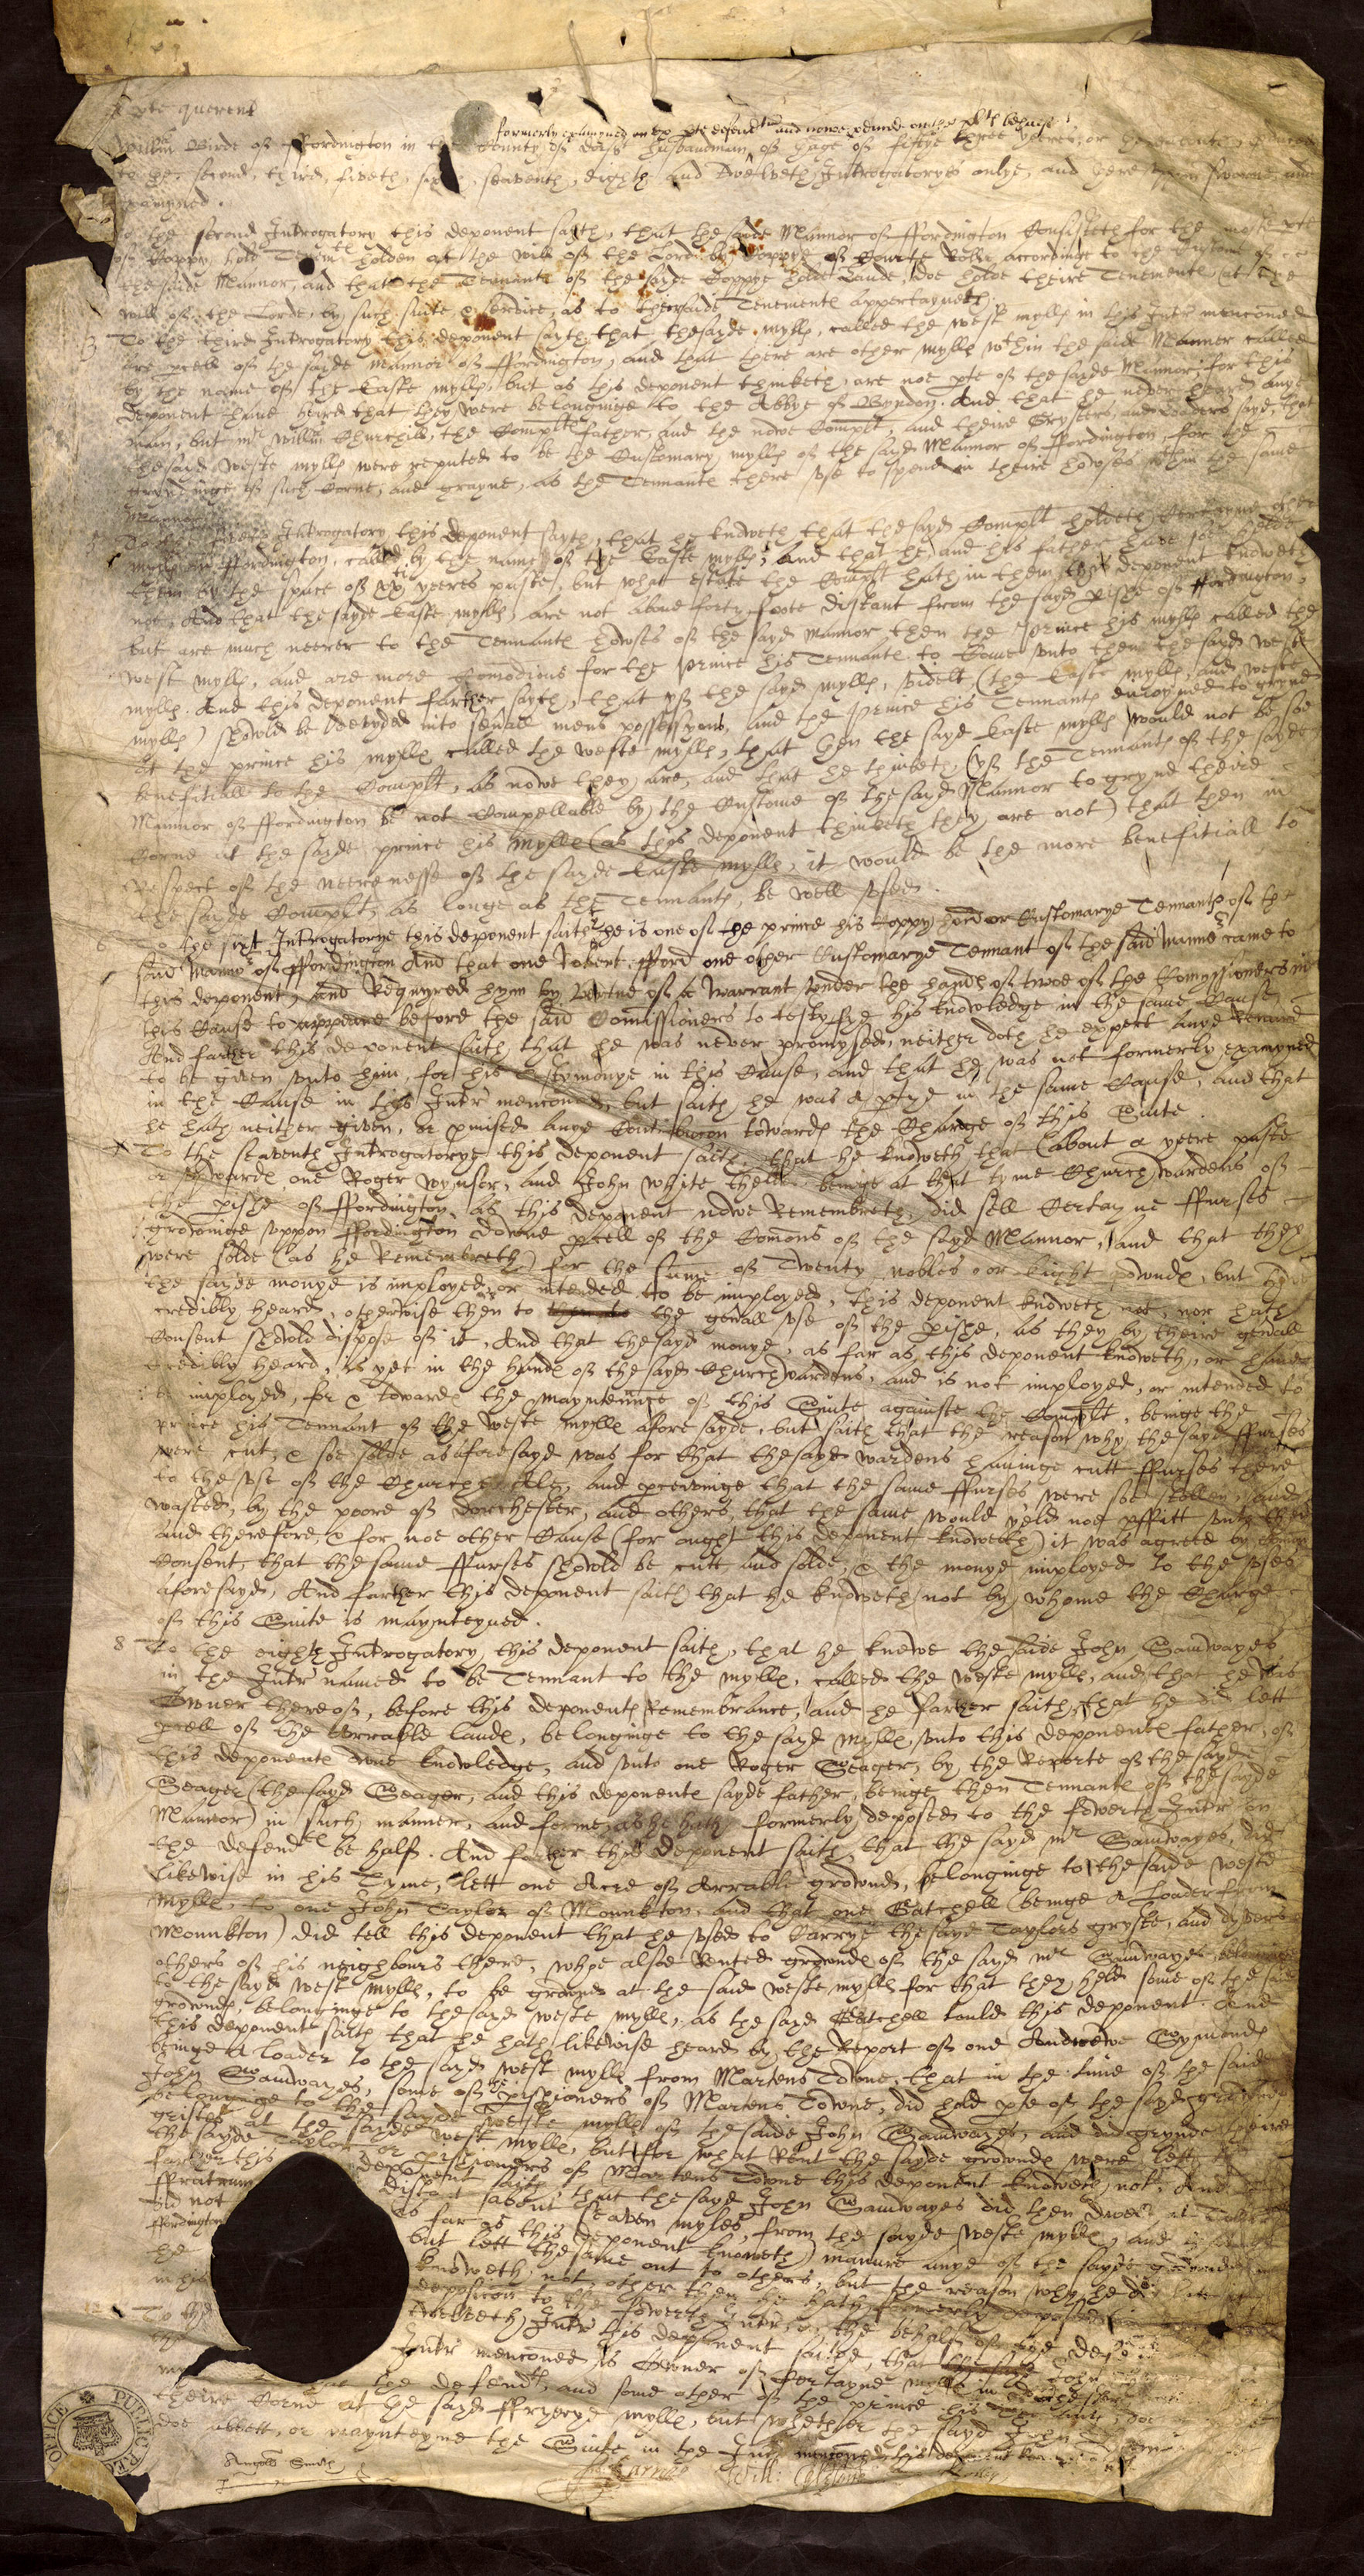 Ex pte querent
formerly examyned on ye pte defendtes and nowe pduced on the plts behalfe
Willm Birde of ffordington in the County of Dors husbandman of thage of fiftye three yeeres, or
to the second, third, fiveth, sixt, seaventh, eighth and Twelveth Introgatorys onlye, and here uppon sworne and
examyned.
To the second Introgatory this deponent sayth, that the saide Mannor of ffordington Consisteth for the most pte
of Coppy hold Tenemtes holden at the will of the Lord by Coppye of Courte Rolle, accordinge to the Custome of
the saide Mannor, and that the Tennantes of the saide Coppye holde Lande, doe holde theire Tenementes at the
will of the Lorde, by such suite & service, as to the saide Tenementes appertayneth.
3 To the third Introgatory this deponent saith, that the sayde mylles, called the west mylles in this Intr menconed
are pcell of the sayde Mannor of ffordington, and that there are other mylles wthin the saide Mannor called
by the name of the Easte mylles, but as this deponent thinketh, are noe pte of the sayde Mannor, for this
deponent hath heard that they were belonginge to the Abbye of Byndon. And that he never heard anye
man, but mr Willm Churchill, the Complts father, and the nowe Complt, and theire Grysters, and Loaders saye, that
the said Weste mylles were reputed to be the Customary mylles of the sayd Mannor of ffordington, for the
gryndinge of such Corne, and grayne, as the Tennantes there use to spend in theire howses wthin the same
Mannor
5 To the fiveth Introgatory this deponent sayth, that he knoweth that the sayd Complt holdeth Certayne other
mylles in ffordington, called by the name of the Easte mylles, and that he, and his father have soe helde
them by the space of xxti yeeres paste, but what estate the Complt hath in them this deponent knoweth
not, And that the sayde Easte mylles, are not above forty foote distant from the sayd pishe of ffordington,
but are much neerer to the Tennantes howses of the sayd Mannor, then the Prince his mylles called the
west mylles, and are more Comodious for the Prince his Tennantes to Come unto then the sayd weste
mylles. And this deponent farther sayth, that yf the sayd mylles, videlt (the Easte mylles, and weste
mylles) should be devyded into severall mens possessyons, and the Prince his Tennantes enioyned to grynd
at the prince his mylles called the weste mylles, that then the sayd Easte mylles would not be soe
benefitiall to the Complt, as nowe they are, and that he thinketh, (yf the Tennantes of the sayde
Mannor of ffordington be not Compellable by the Custome of the sayd Mannor to grynd theire
Corne at the sayde prince his mylles (as this deponent thinketh they are not) that then in
Respect of the neerenesse of the sayde Easte mylles, it would be the more benefitiall to
the sayde Complt, as longe as the Tennantes, be well used.
6 To the sixt Introgatorye this deponent saith he is one of the prince his Coppy hold or Customarye Tennantes of the
said Mannor of ffordington And that one Robert fford one other Customarye Tennant of the said Mannor came to
this deponent, and Requyred hym by vertue of a Warrant under the handes of twoe of the Comyssioners in
this Cause to appeare before the said Comissioners to testyfye his knowledge in the same Cause
And farther this deponent saith that he was never promysed, neither doth he expect anye Reward
to be given unto him, for his testymonye in this Cause, and that he was not formerly examyned
in the Cause in this Intr menconed, but saith he was a ptye in the same Cause, and that
he hath neither given, or pmised anye Contribucon towardes the Charge of this Suite.
To the seaventh Introgatorye this deponent saith, that he knoweth that (about a yeere paste
or upwardes one Roger Wynsor, and John White thelder beinge at that tyme Churchwardens of
the pishe of ffordington, as this deponent nowe Remembreth, did sell Certayne ffurses
growinge uppon ffordington Downe pcell of the Comons of the sayd Mannor, and that they
were solde (as he Remembreth) for the summe of Twenty nobles or Eight pownds, but howe
the sayde monye is imployed, or intended to be imployed, this deponent knoweth not, nor hath
credibly heard, otherwise then to the genall use of the pishe, as they by theire genall
Consent should dispose of it, And that the sayd monye, as far as this deponent knoweth, or hath
credibly heard, is yet in the handes of the sayd Churchwardens, and is not imployed, or intended to
be imployed, for & towardes the mayntennce of this Suite againste the Complt, beinge the
prince his Tennant of the weste mylles afore sayde, but saith that the reason why the sayd ffurses
were cut, & soe solde as aforesayd was for that the sayd wardens havinge cutt ffurses there
to the use of the Church and pceivinge that the same ffurses were soe stollen, and
wasted, by the poore of Dorchester, and others, that the same would yeld noe pffitt unto them
and therefore, & for noe other Cause (for ought this deponent knoweth) it was agreed by Comon
Consent, that the same ffurses should be cutt and solde, & the monye imployed to the uses
aforesayd, And farther this deponent saith that he knoweth not by whome the Charge
of this Suite is maynteyned.
8 To the eighth Introgatory this deponent saith, that he knewe the saide John Samwayes
in the Intr named to be Tennant to the mylles, called the weste mylles, and that he was
Owner thereof, before this deponentes Remembrance, and he farther saith, that he did lett
pcell of the Errable landes, belonginge to the sayd mylles unto this deponentes father, of
this deponentes owne knowledge, and unto one Roger Seager, by the Reporte of the sayde
Seager (the sayd Seager, and this deponentes sayde father, beinge then Tennantes of the sayde
Mannor) in such manner, and forme, as he hath formerly deposed to the fowerth Intr on
the defendtes behalf. And farther this deponent saith, that the sayd mr Samwayes, did
likewise in his Tyme, lett one Acre of Arrable grownd, belonginge to the saide weste
mylles, to one John Taylor of Mounkton, and that one Gatchell (beinge a Loader from
Mounkton) did tell this deponent that he used to Carrye the sayd Taylors gryste, and dyvers
others of his neighbours there, whoe alsoe Rented growndes of the sayd mr Samwayes belonginge
to the sayd west mylles, to be grownd at the said weste mylles for that they held some of the said
growndes, belonginge to the sayd weste mylles, as the sayd Gatchell tould this deponent. And
this deponent saith that he hath likewise heard by the Report of one Andrewe Symondes
beinge a loader to the sayd west mylles from Martens Towne, that in the time of the saide
John Samwayes, some of the pishioners of Martens Towne, did hold pte of the sayd growndes
belonginge to the sayde weste mylles of the saide John Samwayes, and did grynde theire
gristes at the sayde west mylles, but for what Rent the sayde growndes were lett
the sayde Taylor, or pishioners of Martens Towne this deponent knoweth not. And
farther this deponent saith that the sayd John Samwayes did then dwell at
ffratrum distant about seaven myles, from the sayde weste mylles, and
did not as far as this deponent knoweth) manure anye of the sayde growndes
ffordington but lett the same out to others, but the reason why he did
he knoweth not other then he hath formerly deposed
in his deposicon to the fowerth Intr, on the behalf of the
To the twelveth Intr this deponent saithe, that John
the Intr menconed is Owner of Certayne mylles in Dorchester
the defendtes, and some other of the prince his
theire Corne at the sayd ffryerye mylles, but whether the sayd John
doe abbett, or maynteyne the Suite in the Intr menconed this deponent knoweth not
Angell Smith
Will:
PUBLIC RECORD OFFICE